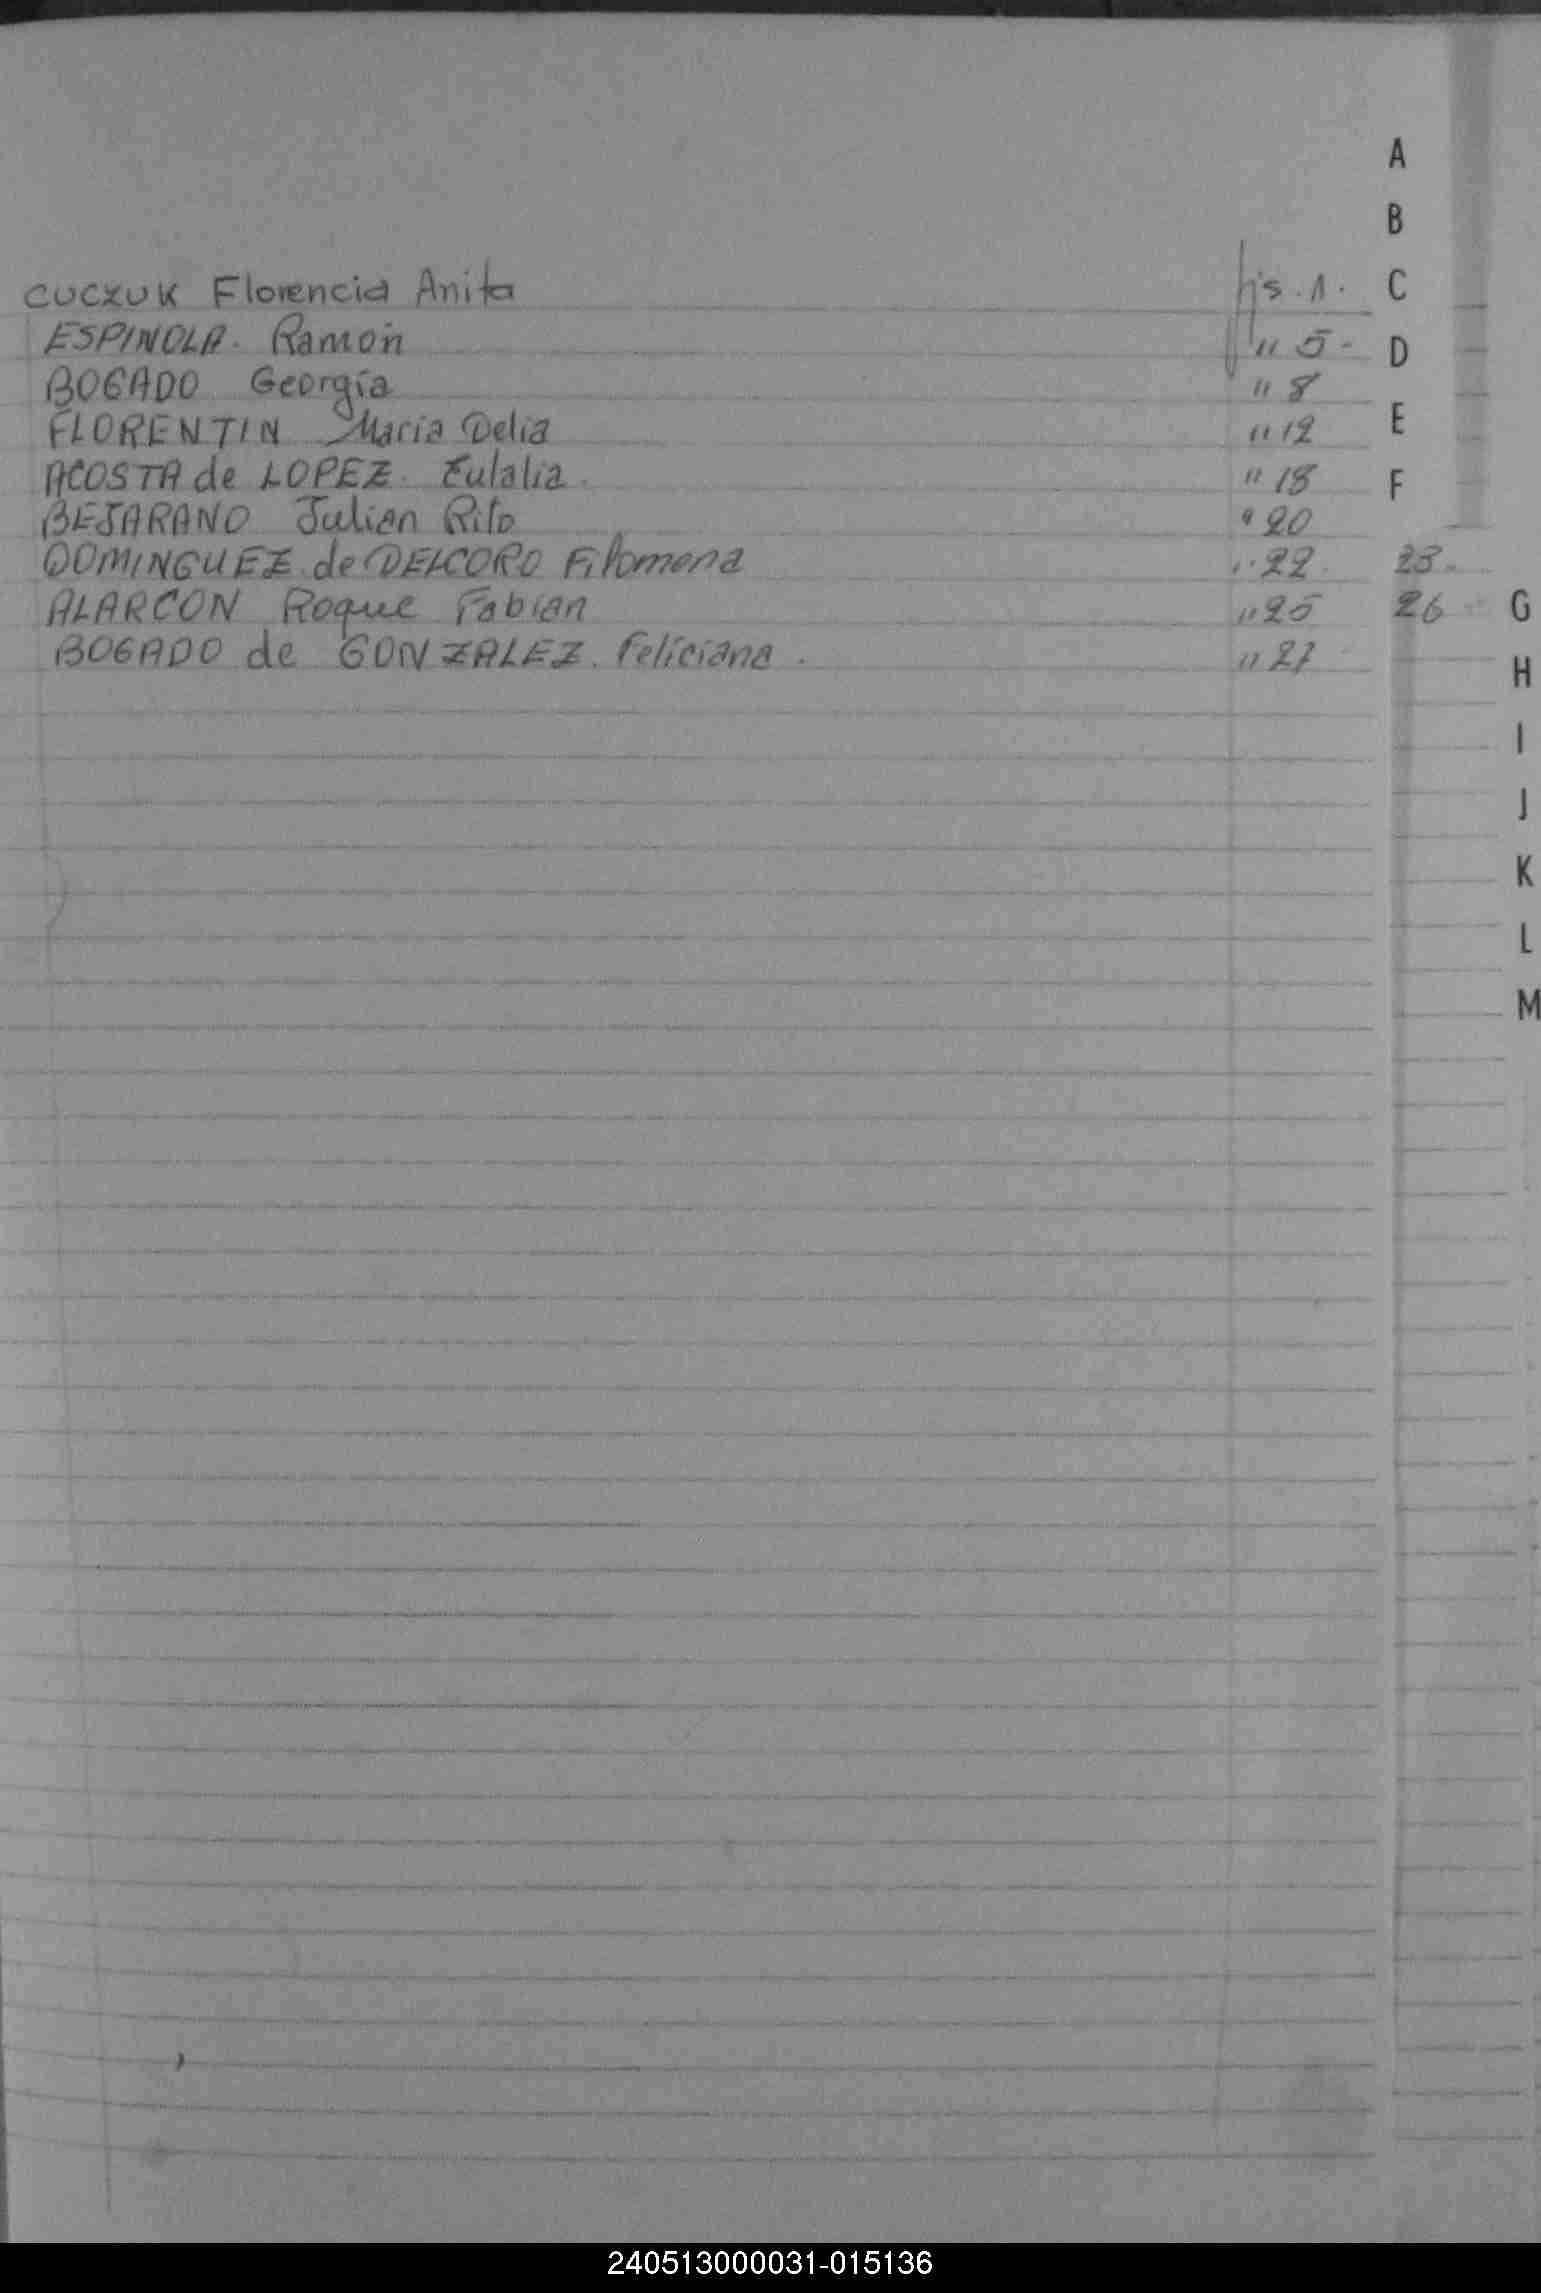 A
B
CUCZUK Florencia Anita fjs. 1. C
ESPINOLA. Ramón " 5- D
BOGADO Georgia " 8
FLORENTIN Maria Delia " 12 E
ACOSTA de LOPEZ. Eulalia. " 18 F
BEJARANO Julian Rito " 20
DOMINGUEZ de DELCORO Filomena " 22 23.
ALARCON Roque Fabian " 25 26 G
BOGADO de GONZALEZ. Feliciana. " 27
H
I
J
K
L
M
240513000031-015136